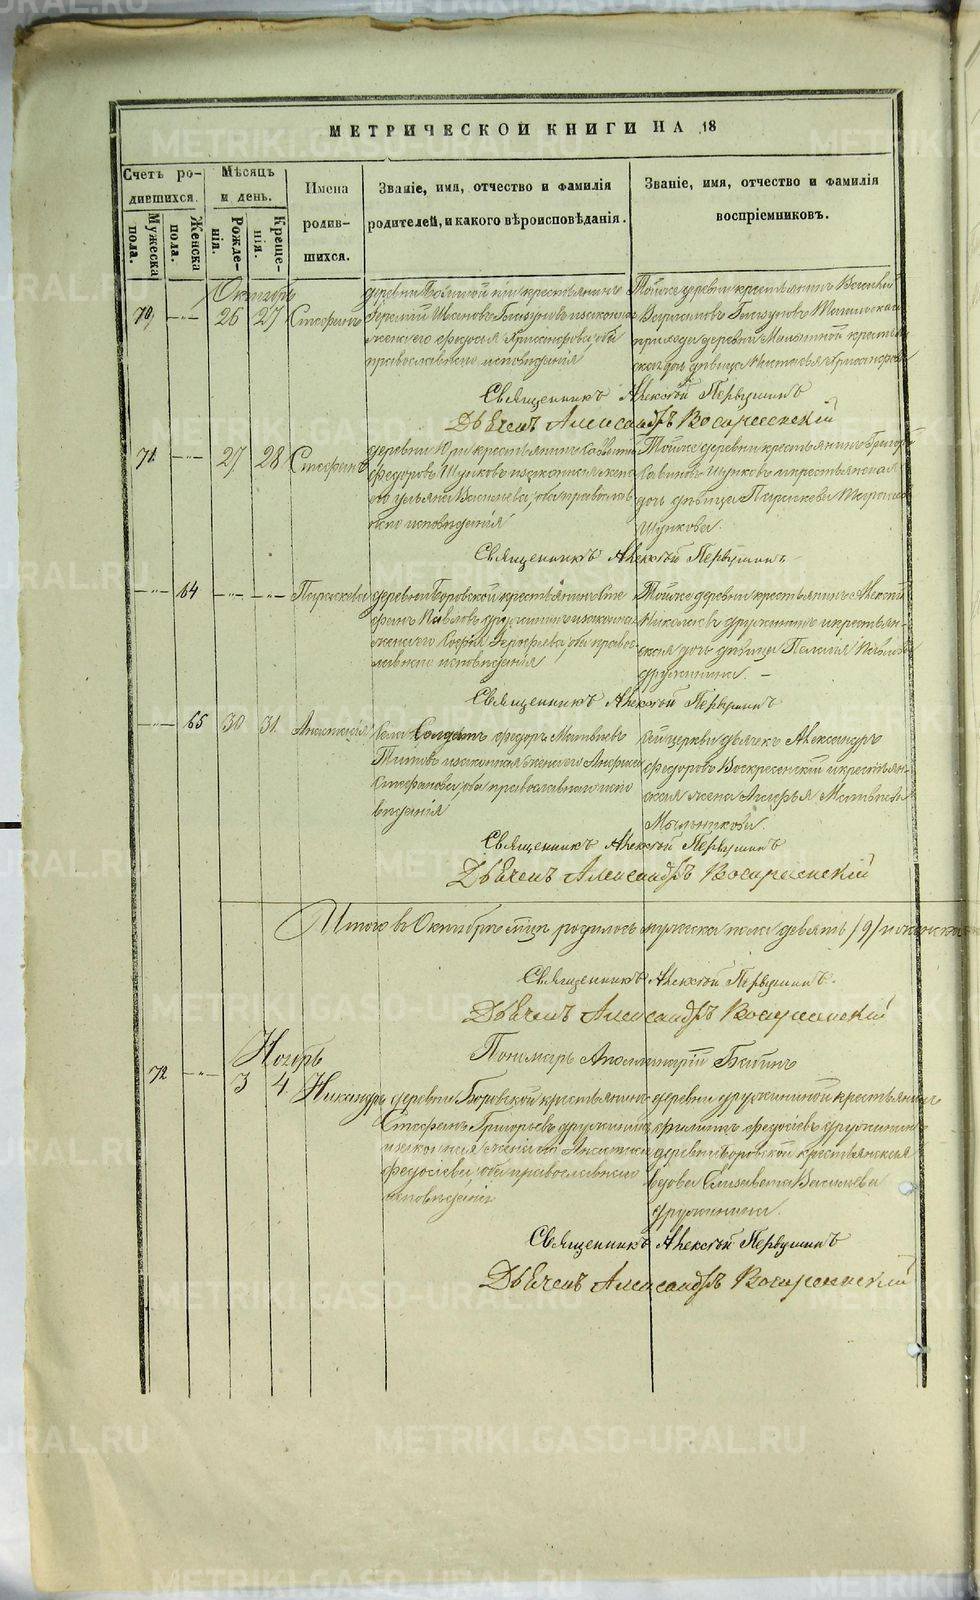 МЕТРИЧЕСКОЙ КНИГИ НА 18
Счетъ родившихся.
Мужеска пола.
Женска пола.
Мѣсяцъ и день.
Рожденія.
Крещенія.
Имена родившихся.
Званіе, имя, отчество и фамилія родителей, и какого вѣроисповѣданія.
Званіе, имя, отчество и фамилія воспріемниковъ.
Октябрь
70 26 27 Стефанъ
деревни крестьянинъ
Ивановъ и законная
жена его Феодосья Христофорова, оба
православнаго исповѣданія
Тойже деревни крестьянинъ
прихода деревни крестьян
ская дочь дѣвица Анастасья Христофорова
Священникъ Алексѣй Первушинъ
Дьячекъ Александръ Воскресенскій
71 27 28 Стефанъ
деревни крестьянинъ
Федоровъ Шунковъ и законная жена
его Ульяна Васильева, оба православ
наго исповѣданія
Тойже деревни крестьянинъ Григорій
Шунковъ и крестьянская
дочь дѣвица Параскева
Шункова.
Священникъ Алексѣй Первушинъ
64 Параскева
деревни Боровской крестьянинъ Сте
фанъ Павловъ Дружининъ и законная
жена его оба правос
лавнаго исповѣданія
Тойже деревни крестьянинъ Алексѣй
Николаевъ Дружининъ и крестьян
ская дочь дѣвица Пелагія
Дружинина.
Священникъ Алексѣй Первушинъ
65 30 31 Анастасія
Села Солдатъ Федоръ Матвѣевъ
Титовъ и законная жена его Анфиса
Стефанова, оба православнаго испо
вѣданія
церкви дьячекъ Александръ
Федоровъ Воскресенскій и крестьян
ская жена Матвѣева
Мыльникова.
Священникъ Алексѣй Первушинъ
Дьячекъ Александръ Воскресенскій
Итого въ Октябрѣ м-цѣ родилось мужеска пола девять /9/ и женска
Священникъ Алексѣй Первушинъ.
Дьячекъ Александръ Воскресенскій
Пономарь Аполлинарій Бабинъ
Ноябрь
72 3 4 Никандръ
деревни Боровской крестьянинъ
Стефанъ Григорьевъ Дружининъ
и законная жена его Анастасія
Федосіева, оба православнаго
исповѣданія
деревни Дружининой крестьянинъ
Филиппъ Федосіевъ Дружининъ
деревни Боровской крестьянская
вдова Елизавета Васильева
Дружинина.
Священникъ Алексѣй Первушинъ
Дьячекъ Александръ Воскресенскій
METRIKI.GASO-URAL.RU